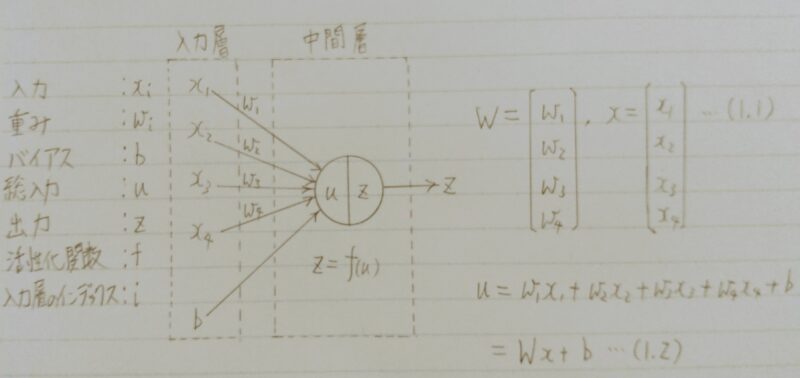 入力 : xi
重み : wi
バイアス : b
総入力 : u
出力 : z
活性化関数 : f
入力層のインデックス : i
入力層
中間層
x1
w1
x2
w2
x3
w3
x4
w4
b
u z
z
z = f(u)
W = [w1 w2 w3 w4], x = [x1 x2 x3 x4] … (1.1)
u = w1x1 + w2x2 + w3x3 + w4x4 + b
= Wx + b … (1.2)